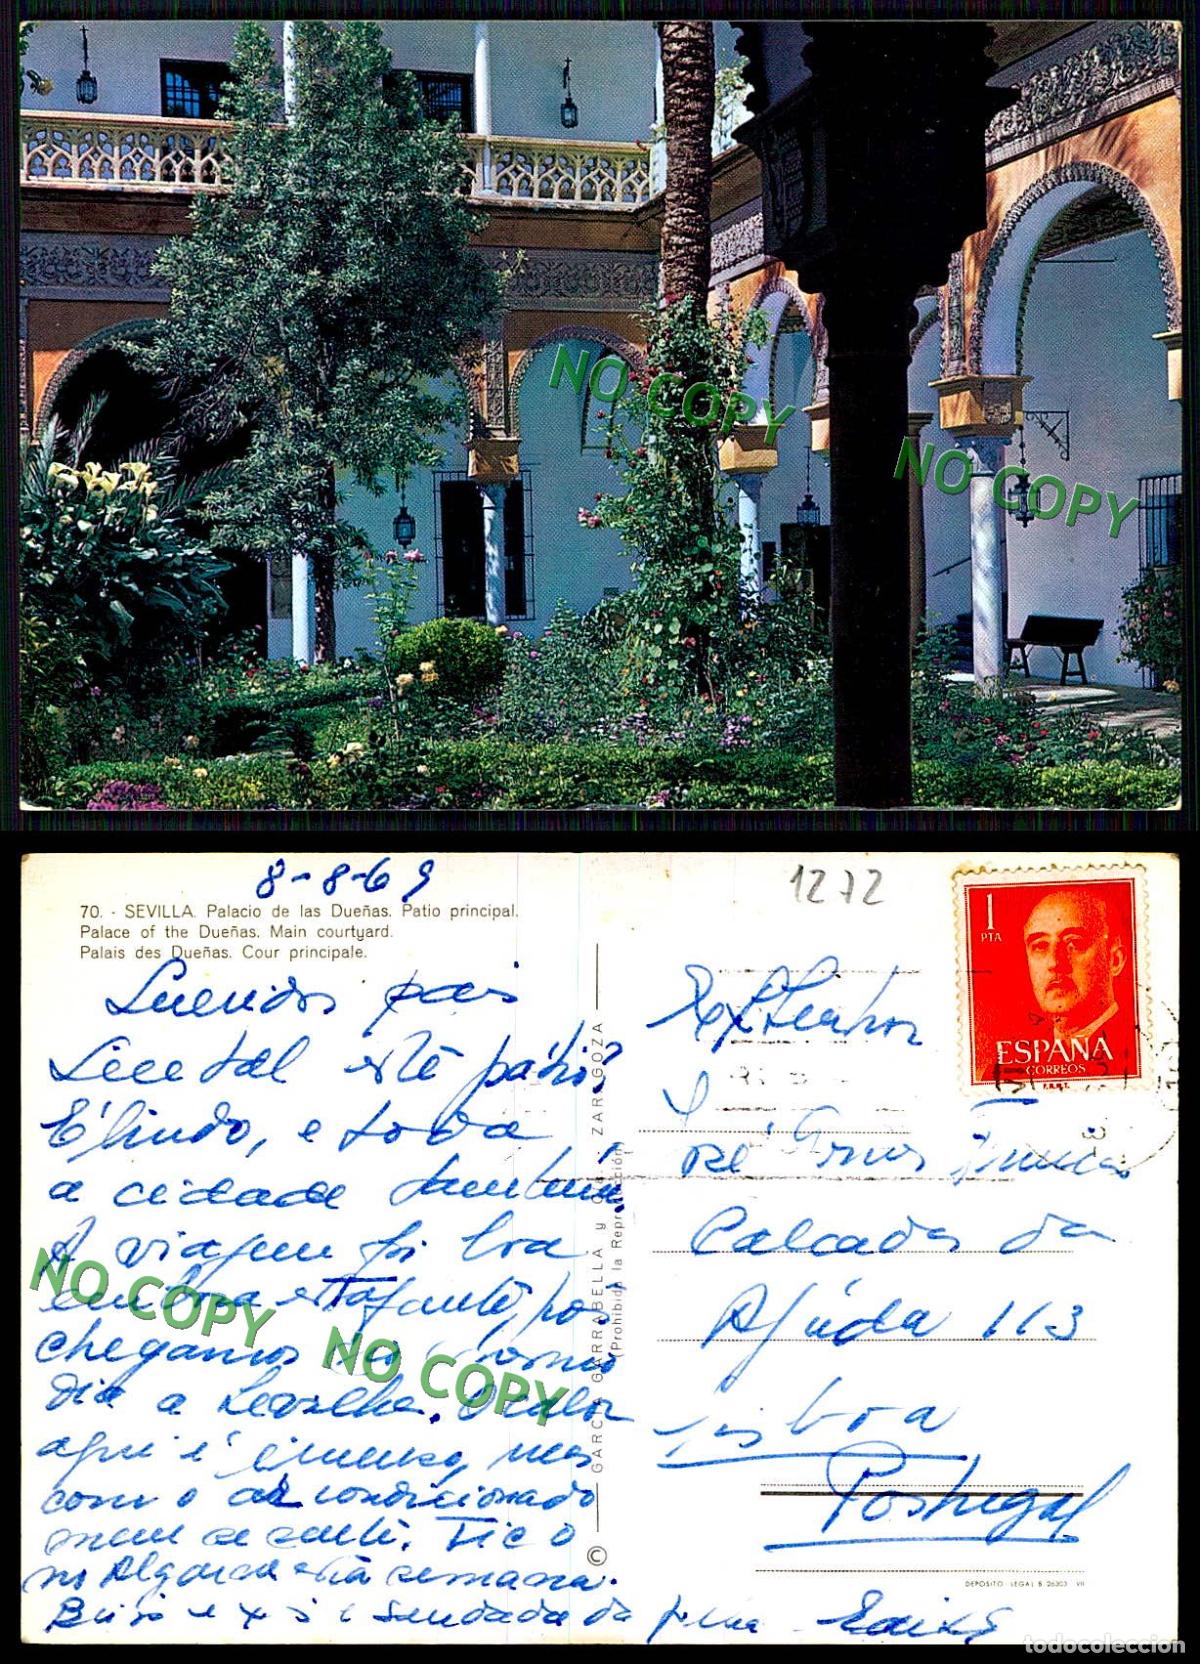 NO COPY
NO COPY
8-8-69
1272
70. - SEVILLA. Palacio de las Dueñas. Patio principal.
Palace of the Dueñas. Main courtyard.
Palais des Dueñas. Cour principale.
1
PTA
ESPAÑA
CORREOS
F.N.M.T.
Queridos pais
Que tal este pátio?
É lindo, e toda
a cidade também.
A viagem foi boa
embora estafante, pois
chegamos no mesmo
dia a Sevilha. O calor
aqui é imenso, mas
com o ar condicionado
nem se sente. Fico
no Algarve esta semana.
Beijos e saudades da filha
NO COPY
NO COPY
© GARCIA GARRABELLA y Cía. ZARAGOZA
(Prohibida la Reproducción)
Senhor
José
Calçada da
Ajuda 113
Lisboa
Portugal
DEPOSITO LEGAL B. 26303 VII
todocoleccion